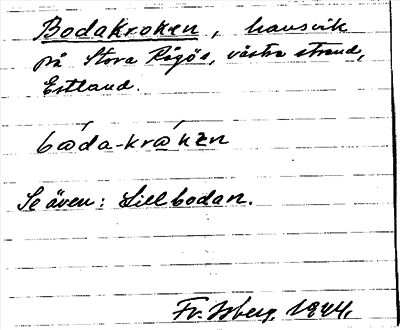 Bodakroken, havsvik
på Stora Rågös, västra strand,
Estland.
bώda-krώkεn
Se även: Lillbodan.
Fr. Isberg, 1944.